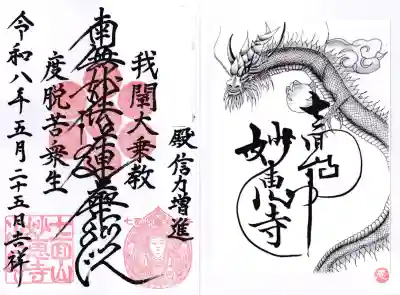 七面山
妙恵寺
殿信力増進
我闡大乗教
南無妙法蓮華経
度脱苦衆生
令和八年五月二十五日吉祥
七面山
妙恵寺